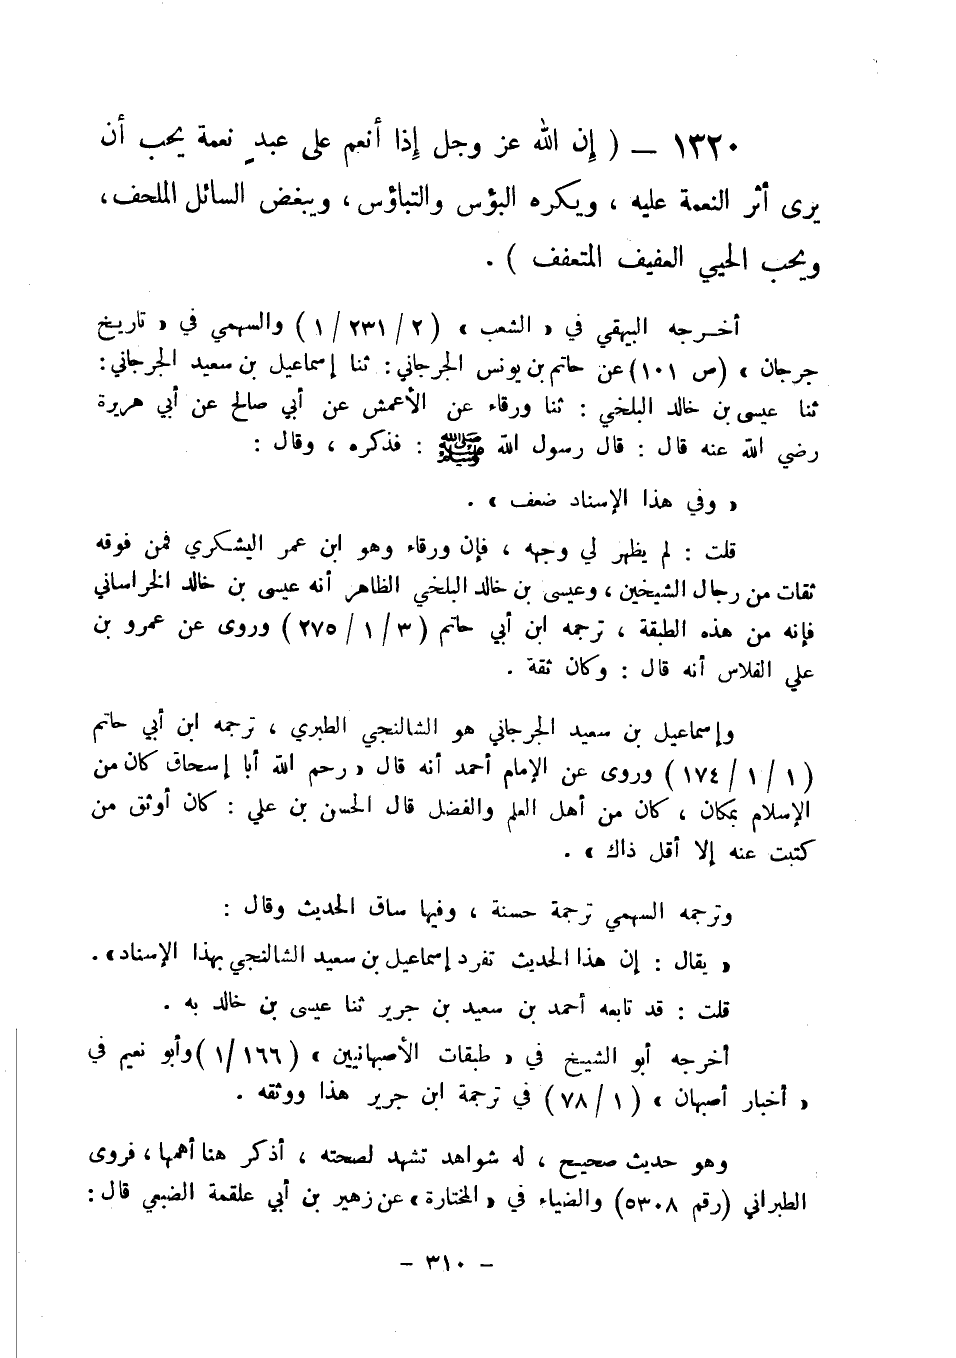 ١٣٢٠ ــ ( إن الله عز وجل إذا أنعم على عبدٍ نعمة يحب أن
يرى أثر النعمة عليه ، ويكره البؤس والتباؤس ، ويبغض السائل الملحف ،
ويحب الحيي العفيف المتعفف ) .
أخـرجه البيهقي في « الشعب » ( ٢ / ٢٣١ / ١ ) والسهمي في « تاريـخ
جرجان » (ص ١٠١) عن حاتم بن يونس الجرجاني : ثنا إسماعيل بن سعيد الجرجاني :
ثنا عيسى بن خالد البلخي : ثنا ورقاء عن الأعمش عن أبي صالح عن أبي هريرة
رضي الله عنه قال : قال رسول الله ﷺ : فذكره ، وقال :
« وفي هذا الإسناد ضعف » .
قلت : لم يظهر لي وجهه ، فإن ورقاء وهو ابن عمر اليشكري فمن فوقه
ثقات من رجال الشيخين ، وعيسى بن خالد البلخي الظاهر أنه عيسى بن خالد الخراساني
فإنه من هذه الطبقة ، ترجمه ابن أبي حاتم ( ٣ / ١ / ٢٧٥ ) وروى عن عمرو بن
علي الفلاس أنه قال : وكان ثقة .
وإسماعيل بن سعيد الجرجاني هو الشالنجي الطبري ، ترجمه ابن أبي حاتم
( ١ / ١ / ١٧٤ ) وروى عن الإمام أحمد أنه قال « رحم الله أبا إسحاق كان من
الإسلام بمكان ، كان من أهل العلم والفضل قال الحسن بن علي : كان أوثق من
كتبت عنه إلا أقل ذاك » .
وترجمه السهمي ترجمة حسنة ، وفيها ساق الحديث وقال :
« يقال : إن هذا الحديث تفرد إسماعيل بن سعيد الشالنجي بهذا الإسناد » .
قلت : قد تابعه أحمد بن سعيد بن جرير ثنا عيسى بن خالد به .
أخرجه أبو الشيخ في « طبقات الأصبهانيين » ( ١٦٦ / ١ ) وأبو نعيم في
« أخبار أصبهان » ( ١ / ٧٨ ) في ترجمة ابن جرير هذا ووثقه .
وهو حديث صحيح ، له شواهد تشهد لصحته ، أذكر هنا أهمها ، فروى
الطبراني (رقم ٥٣٠٨) والضياء في « المختارة » عن زهير بن أبي علقمة الضبعي قال :
- ٣١٠ -